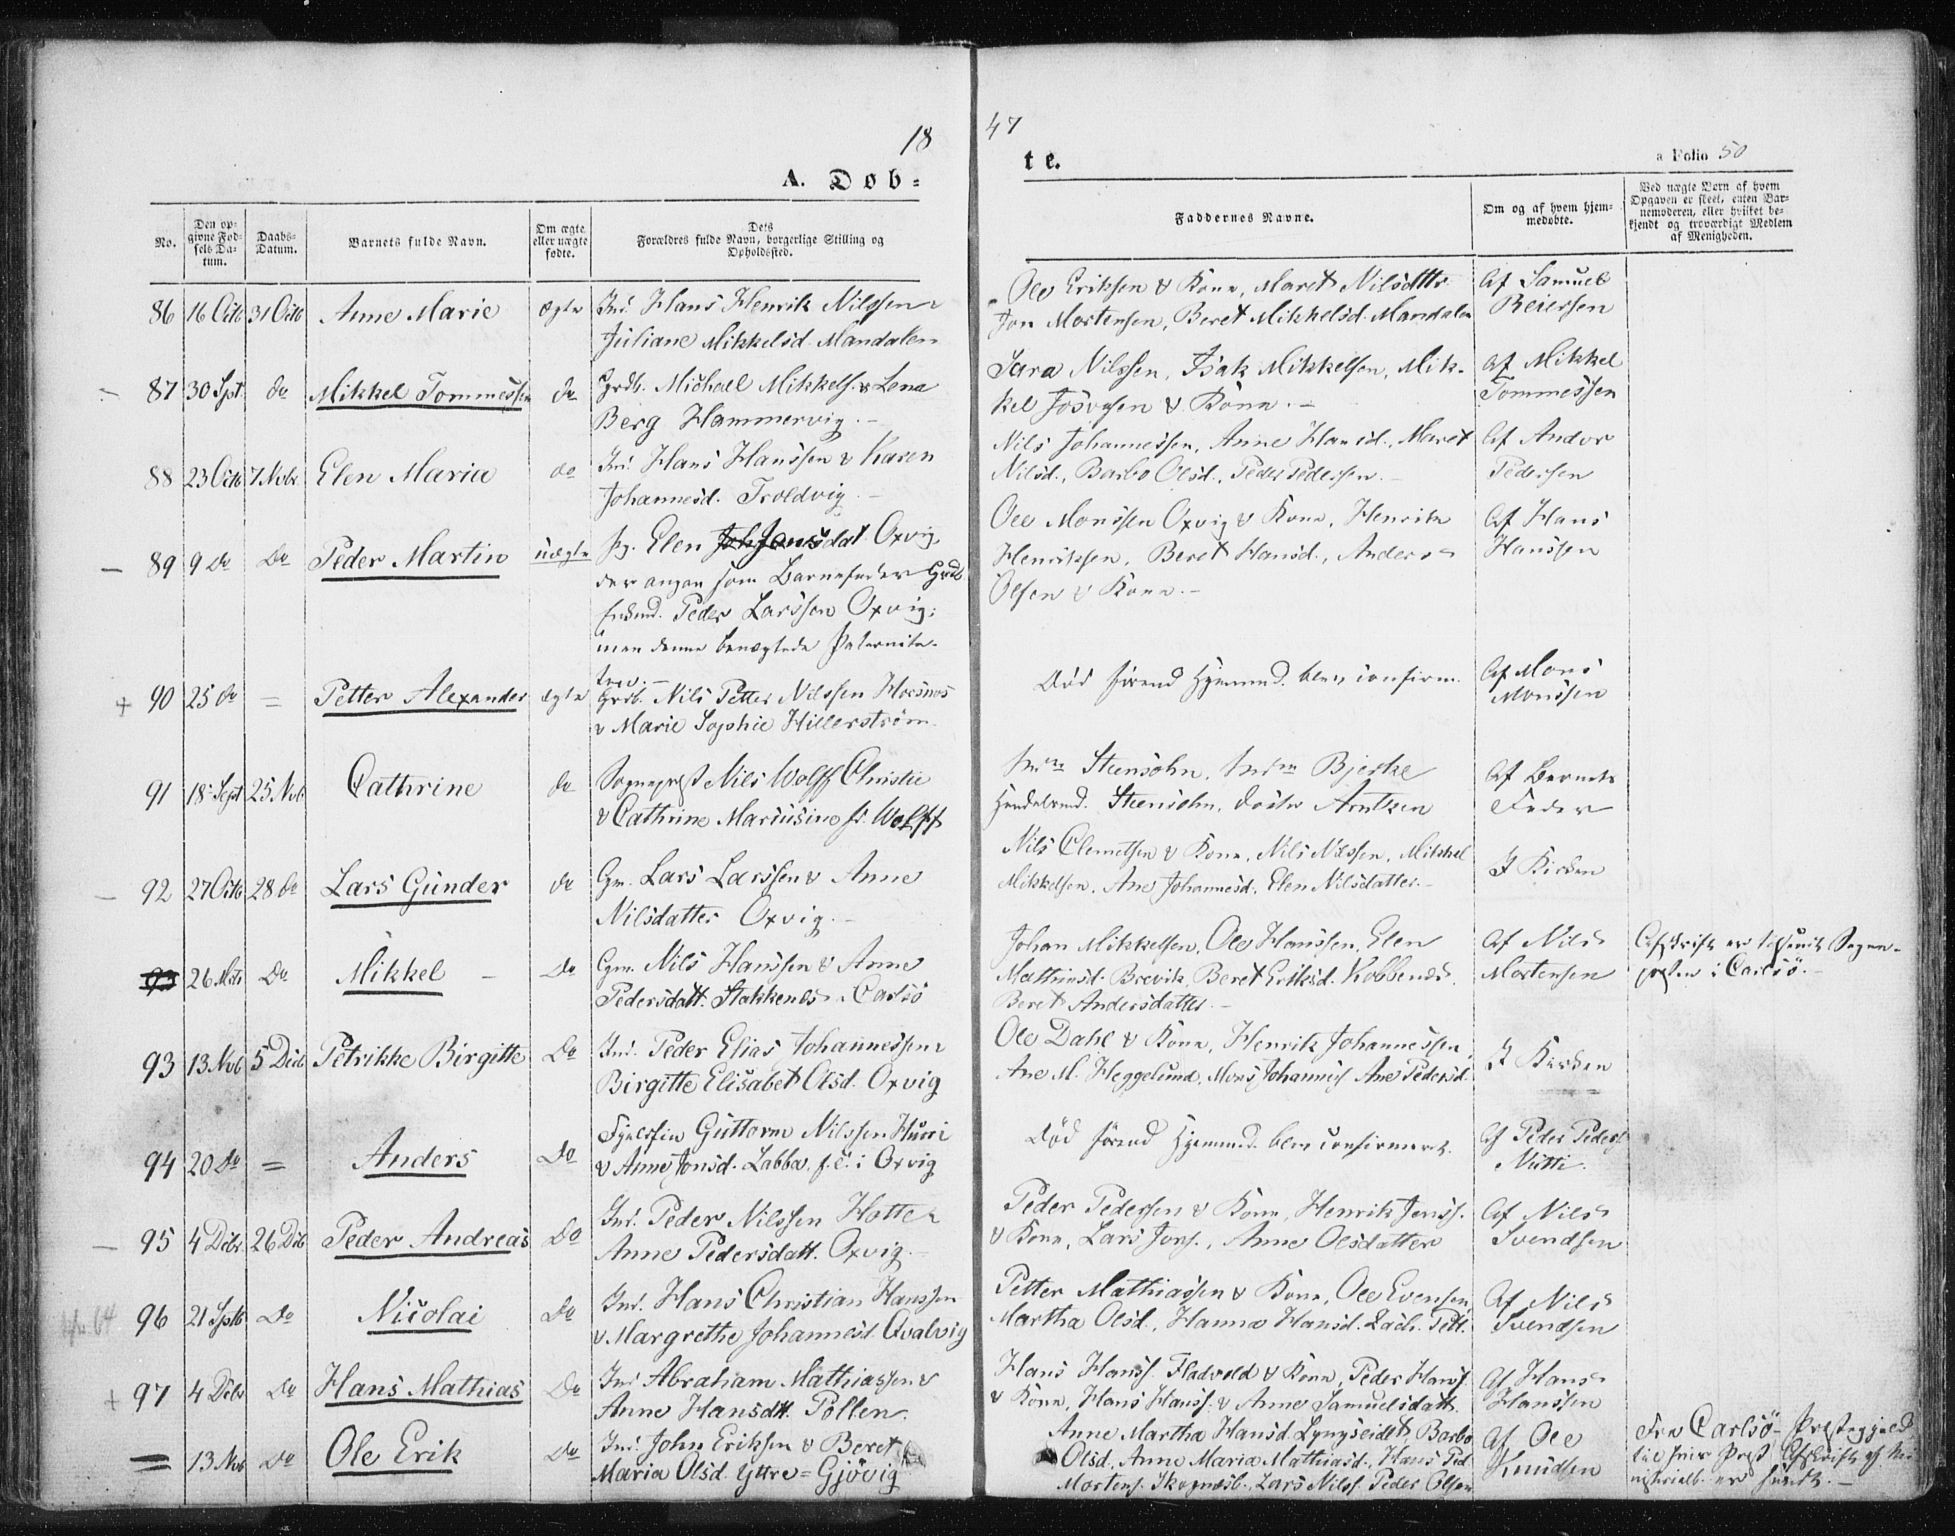 18
47
A. Døb-
te.
a Folio 50
No.
Den op-
givne Fød-
sels Da-
tum.
Daabs-
Datum.
Barnets fulde Navn.
Om ægte
eller uægte
fødte.
Dets
Forældres fulde Navn, borgerlige Stilling og
Opholdssted.
Faddernes Navne.
Om og af hvem hjem-
medøbte.
Ved uægte Børn af hvem
Opgaven er skeet, enten Bar-
nemoderen, eller hvilket be-
kjendt og troværdigt Medlem
af Menigheden.
86 16 Octb 31 Octb Anne Marie ægte Ind. Hans Henrik Nilssen
Juliane Mikkelsd. Mandalen
Ole Eriksen & Kone, Maret Nilsdttr
Jon Mortensen, Beret Mikkelsd. Mandalen
Af Samuel
Reiersen
87 30 Spt do Mikkel Tommessen do Grdb. Michael Mikkels. & Lena
Berg Hammervig.
Sara Nilssen, Isak Mikkelsen, Mik-
kel Josvasen & Kone.
Af Mikkel
Tommessen
88 23 Octb 7 Novbr. Elen Maria do Ind. Hans Hanssen & Karen
Johannesd. Troldvig.
Nils Johannessen, Anne Hansd., Maret
Nilsd., Barbo Olsd., Peder Pedersen.
Af Andor
Pedersen
89 9 Do Do Peder Martin uægte Pg. Elen Jonsdat Oxvig,
der angav som Barnefader Grdb.
Enkmd. Peder Larssen Oxvig;
men denne benægtede Paternite-
ten.
Ole Monssen Oxvig & Kone, Henrik
Henriksen, Beret Hansd., Anders
Olsen & Kone.
Af Hans
Hanssen
90 25 do = Petter Alexander ægte Grdb. Nils Petter Nilssen
& Marie Sophie Hillerstrøm
Død førend Hjemmed. blev confirm.
Af Mons
Monssen
91 18 Sept 25 Nvb. Cathrine do Sogneprest Nils Wolff Christie
& Cathrine Mariusine f. Wolff
Steensohn, Bjerke
Handelsmd. Steensohn, Arntzen
Af Barnets
Fader
92 27 Octb 28 do Lars Gunder do Gm. Lars Larssen & Anne
Nilsdatter Oxvig.
Nils Clemetsen & Kone, Nils Nilssen, Mikkel
Mikkelsen, Ane Johannesd., Elen Nilsdatter.
I Kirken
93 26 Do Mikkel Do Gm. Nils Hanssen & Anne
Pedersdatt. Stakkenes i Carlsö
Johan Mikkelsen, Ole Hanssen, Elen
Mathiasd. Brevik, Beret Eriksd. Kobbenes.
Beret Andersdatter.
Af Nils
Mortensen
Afskrift er tilsendt Sogne-
presten i Carlsö.
93 13 Nvb 5 Decb Petrikke Birgitte Do Ind. Peder Elias Johannessen
Birgitte Elisabet Olsd. Oxvig
Ole Dahl & Kone, Henrik Johannessen,
Ane M. Heggelund, Mons Johanness Ane Pedersd.
I Kirken
94 20 Do = Anders Do Fjelfin Guttorm Nilssen Hurri
& Anne Jonsd. Labba, f. e. i Orvig
Død førend Hjemmed. blev confirmeret.
Af Peder Peders.
Nutti.
95 4 Dcbr. 26 Dcb Peder Andreas Do Ind. Peder Nilssen Hotte
Anne Pedersdatt. Oxvig.
Peder Pedersen & Kone, Henrik Jenss.
& Kone, Lars Jons., Anne Olsdatter
Af Nils
Svendsen
96 21 Sptb Do Nicolai Do Ind. Hans Christian Hanssen
& Margrethe Johannesd. Qvalvig
Petter Mathiassen & Kone, Ole Evensen,
Martha Olsd., Hanna Hansd. Zach. Ped.
Af Nils
Svendsen
97 4 Dcbr do Hans Mathias Do Ind Abraham Mathiassen &
Anne Hansdtt. Pollen.
Hans Hanss. Fladvold & Kone, Peder Hanss
& Kone, Hans Hanss. & Anne Samuelsdatt.
Af Hans
Hanssen
13 Nvb do Ole Erik Do Ind. John Eriksen & Beret
Maria Olsd. Yttre-Gjövig
Anne Martha Hansd. Lyngseidet, Barbo
Olsd., Anne Maria Mathiasd., Hans Ped
Mortens. Skognæsb., Lars Nilss. Peder Olsen
Af Ole
Knudsen
Fra Carlsö Prestegjeld
Prest Afskrift af Mi-
nisterialb. er sendt.